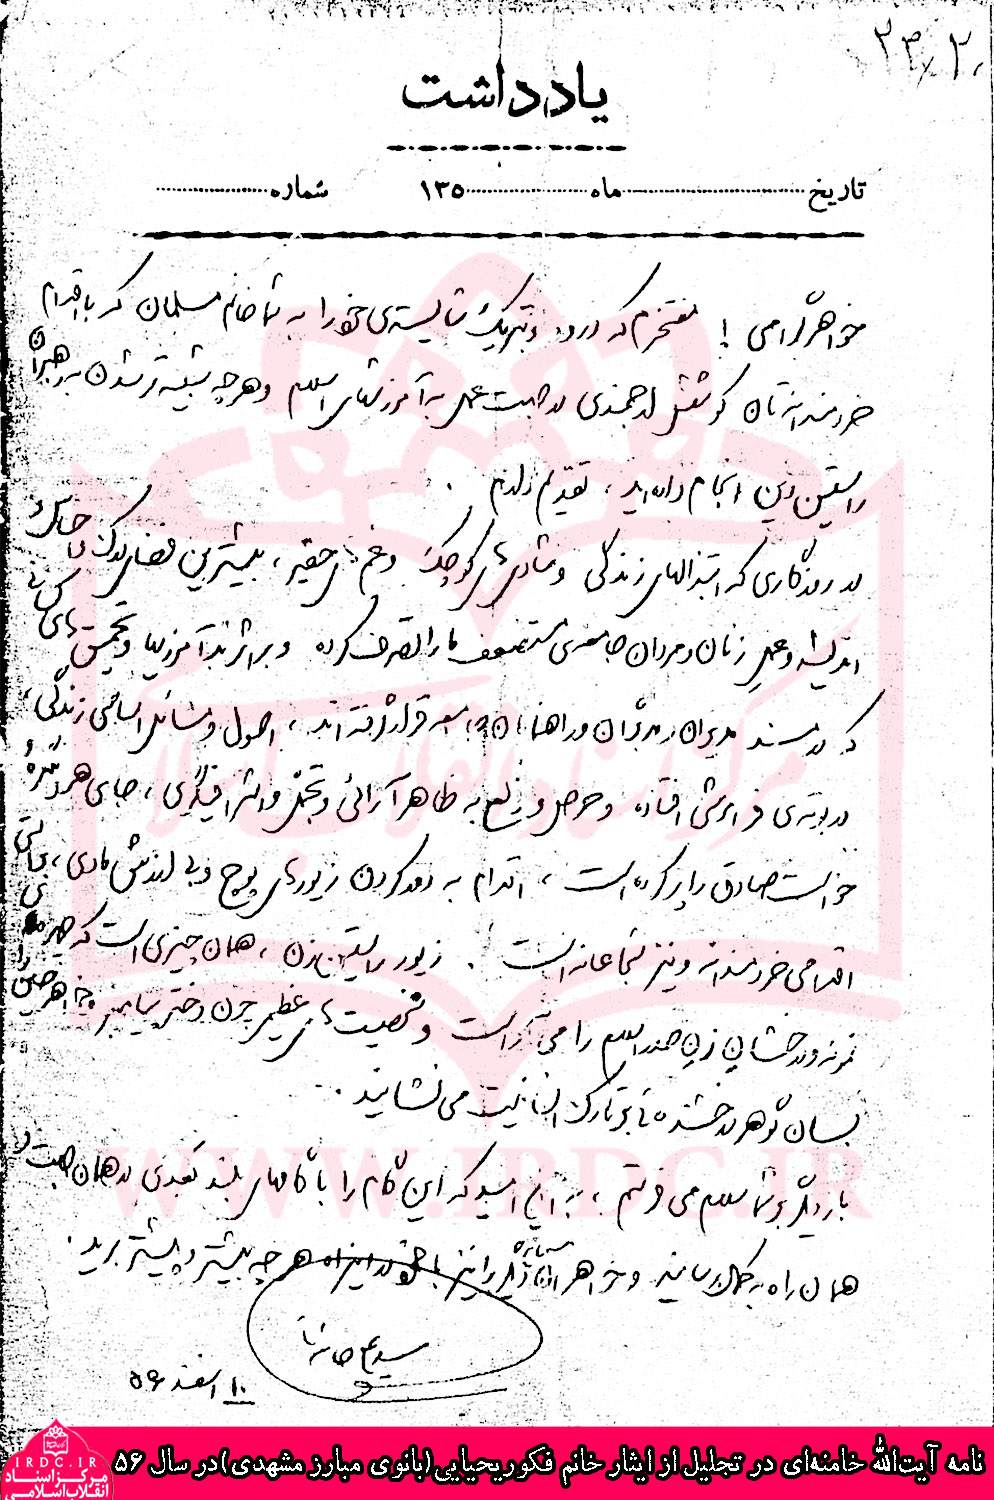 ۲۳/۲۰
یادداشت
تاریخ ماه ۱۳۵ شماره
خواهر گرامی! مفتخرم که درود و تبریک شایسته‌ی خود را به شما خانم مسلمان که با اقدام
خردمندانه‌تان کوشش ارجمندی در جهت عمل به آموزشهای اسلام و هر چه شبیه‌تر شدن به رهبران
راستین دین انجام داده‌اید، تقدیم دارم.
در روزگاری که ابتذالهای زندگی و شادی‌های کوچک و غم‌های حقیر، بیشترین فضای
اندیشه و عمل زنان و مردان جامعه‌ی مستضعف ما را تصرف کرده و بر اثر بدآموزیها و تحمیق‌های کسانی
که در مسند مدیران و مدبران و راهنمایان جامعه قرار گرفته‌اند، اصول و مسائل اساسی زندگی،
در بوته‌ی فراموشی افتاده و حرص و ولع به ظاهرآرائی و تجمل و اشرافیگری، جای هر
خواست صادق را پر کرده است، اقدام به رها کردن زیورهای پوچ و بی ارزش مادی، براستی
اقدامی خردمندانه و نیز شجاعانه است. زیور راستین زن، همان چیزی است که چهره‌ی
نمونه و درخشان زن صدر اسلام را می‌آراست و شخصیت‌های عظیمی چون دختر پیامبر و خواهر حسین را
بسان گوهر درخشنده‌ای بر تارک انسانیت می‌نشانید.
بار دیگر بر شما سلام می‌فرستم، به این امید که این گام را با گامهای بلند بعدی در همان جهت و
همان راه به کمال رسانید و خواهران دیگر را نیز با خود در این راه هر چه بیشتر و پیشتر برید.
سیدعلی خامنه‌ای
۱۰ اسفند ۵۶
WWW.IRDC.IR
IRDC.IR
مرکز اسناد
انقلاب اسلامی
نامه آیت‌الله خامنه‌ای در تجلیل از ایثار خانم فکوریحیایی(بانوی مبارز مشهدی)در سال ۵۶